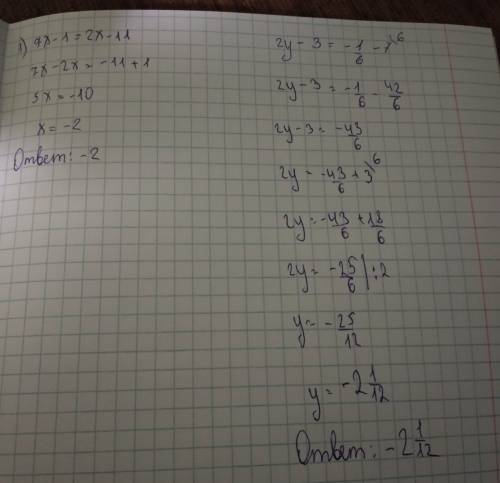 1) 7x-1=2x-11
7x-2x=-11+1
5x=-10
x=-2
Ответ: -2
2y-3=-1/6-7\6
2y-3=-1/6-42/6
2y-3=-43/6
2y=-43/6+3\6
2y=-43/6+18/6
2y=-25/6|:2
y=-25/12
y=-2 1/12
Ответ: -2 1/12